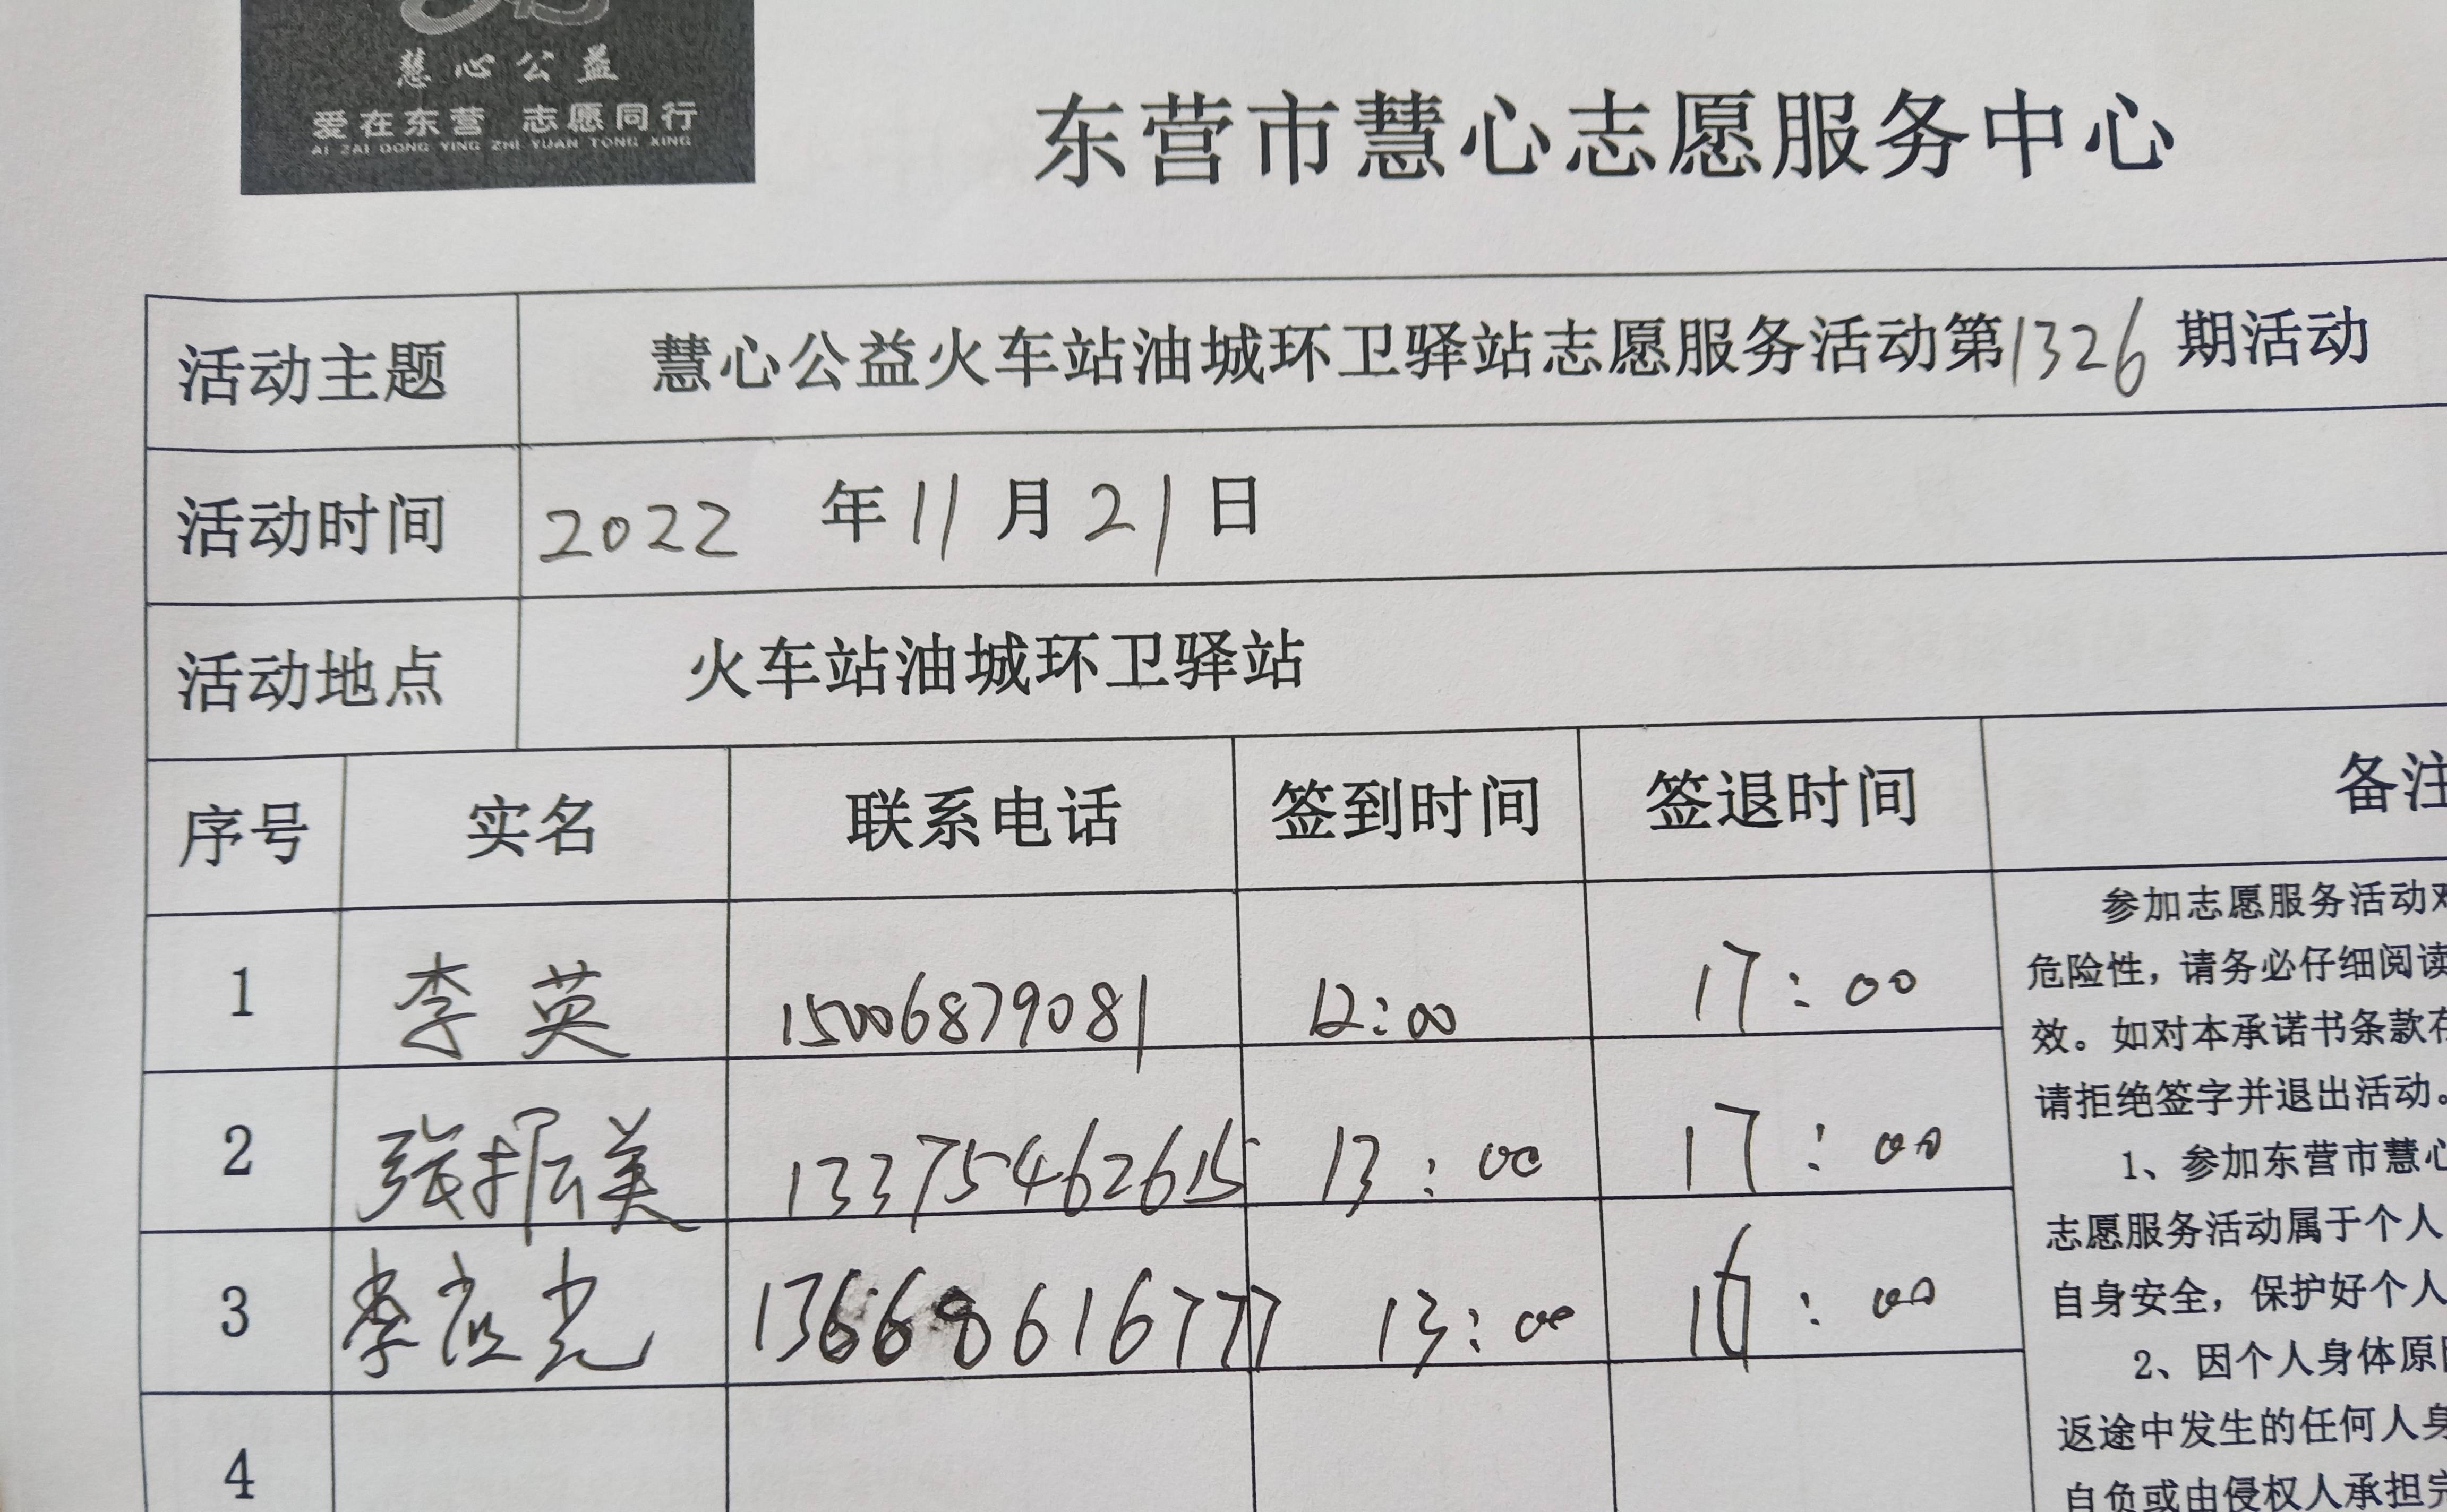 慧心公益
爱在东营 志愿同行
AI ZAI DONG YING ZHI YUAN TONG XING
东营市慧心志愿服务中心
活动主题 慧心公益火车站油城环卫驿站志愿服务活动第1326期活动
活动时间 2022 年 11 月 21 日
活动地点 火车站油城环卫驿站
序号 实名 联系电话 签到时间 签退时间 备注
1 李英 15006879081 12:00 17:00
2 张振美 13375462615 13:00 17:00
3 李 光 13668616777 13:00 16:00
4
参加志愿服务活动
危险性，请务必仔细阅读
效。如对本承诺书条款
请拒绝签字并退出活动。
1、参加东营市慧心
志愿服务活动属于个人
自身安全，保护好个人
2、因个人身体原
返途中发生的任何人身
自负或由侵权人承担